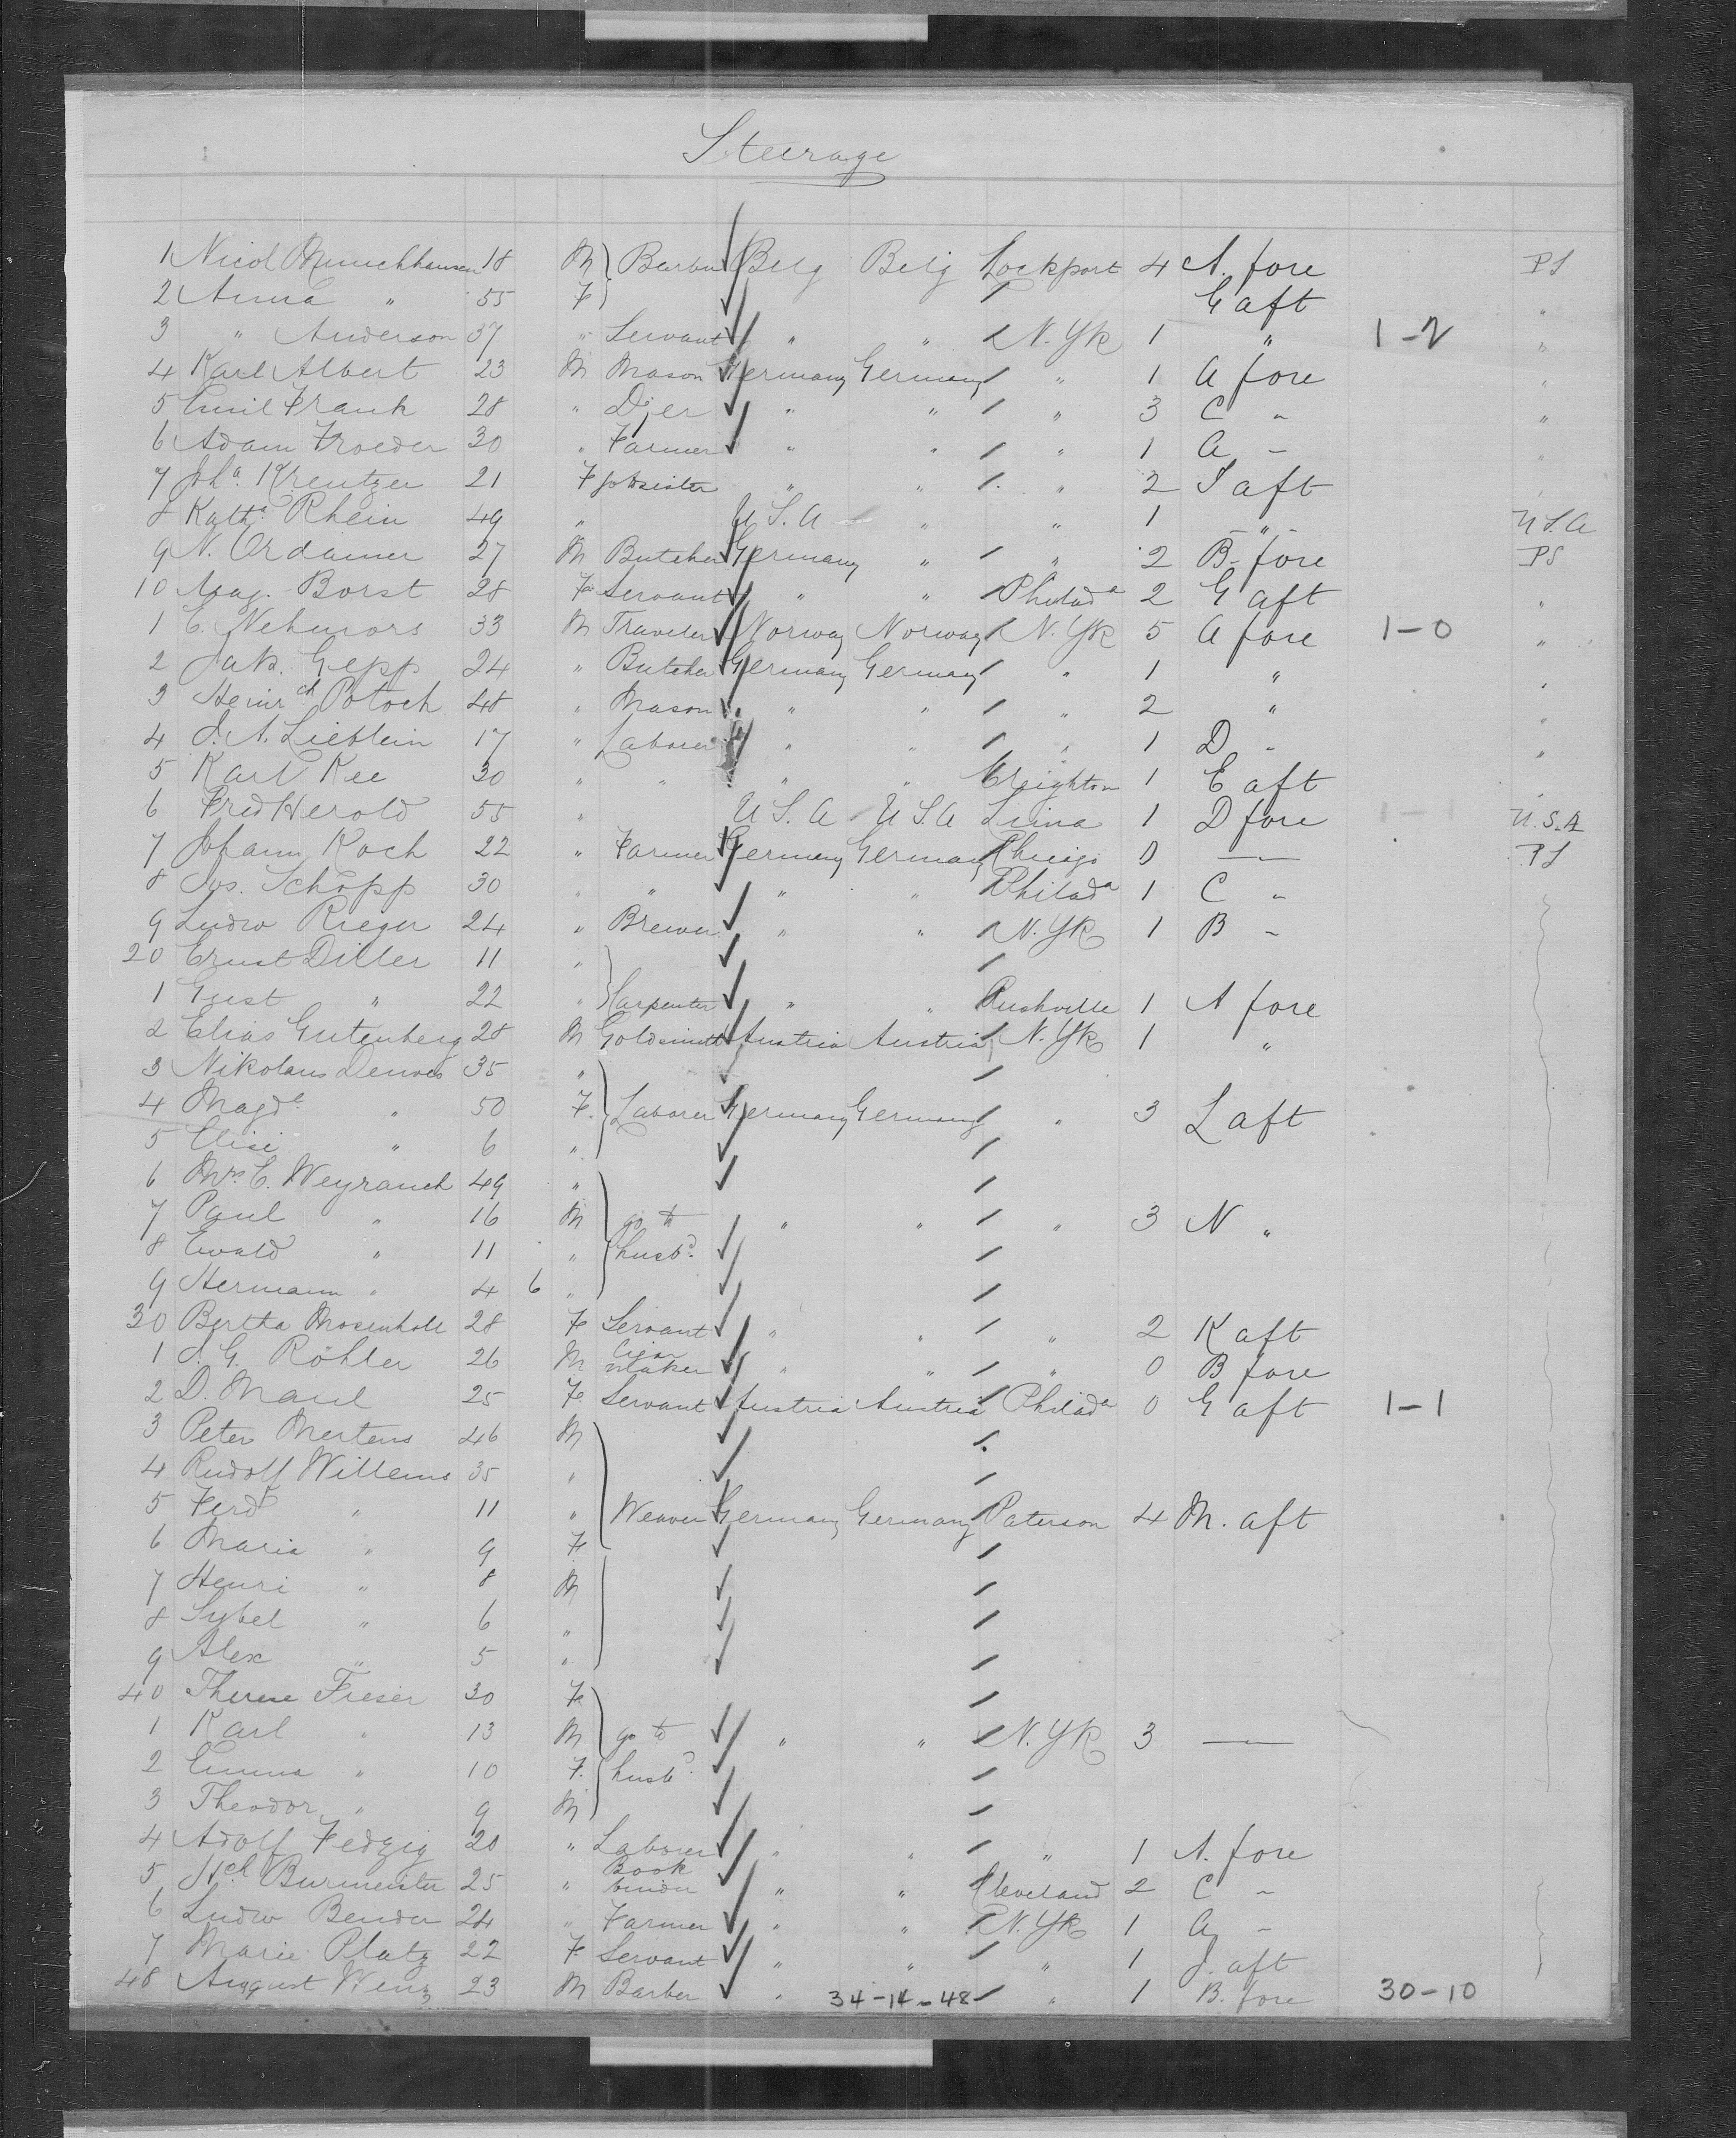 Steerage
1 Nicol Munchhausen 18 M Barber Belg Belg Lockport 4 A. fore PS
2 Anna " 55 F G aft "
3 " Anderson 37 " Servant " " N. Yk 1 " 1-2 "
4 Karl Albert 23 M Mason Germany Germany " 1 A fore "
5 Emil Frank 28 " Dyer " " " 3 C " "
6 Adam Froeder 30 " Farmer " " " 1 A " "
7 Joh.a Kreutzer 21 F go to sister " " " 2 J aft
8 Kath.a Rhein 49 " U S. A " " 1 " U S. A
9 N. Ordamer 27 M Butcher Germany " " 2 B. fore PS
10 Mag. Borst 28 F Servant " " Philada 2 G aft "
1 C. Nehmors 33 M Traveler Norway Norway N. Yk 5 A fore 1-0 "
2 Jak. Gepp 24 " Butcher Germany Germany " 1 " "
3 Heinrch Potoch 48 " Mason " " " 2 " "
4 J. A. Lieblein 17 " Laborer " " " 1 D " "
5 Karl Kee 30 " " " " Creighton 1 E aft "
6 Fred Herold 55 " U S. A U S A Lima 1 D fore 1-1 U. S. A
7 Johann Koch 22 " Farmer Germany Germany Chicago 0 — PS
8 Jos. Schöpp 30 " " " " Philada 1 C "
9 Ludw Rieger 24 " Brewer " " N. Yk 1 B "
20 Ernst Diller 11 "
1 Gust " 22 " Carpenter " " Rushville 1 A fore
2 Elias Gutenberg 28 M Goldsmith Austria Austria N. Yk 1 "
3 Nikolaus Denves 35 "
4 Magd.a " 50 F. Laborer Germany Germany " 3 L aft
5 Elise " 6 "
6 Mrs. C. Weyrauch 49 "
7 Paul " 16 M go to " " " 3 N "
8 Ewald " 11 " husbd.
9 Hermann " 4 6 "
30 Bertha Mosenholt 28 F Servant " " " 2 K aft
1 J. G. Röhler 26 M Cigar maker " " " 0 B fore
2 D. Maul 25 F Servant Austria Austria Philada 0 G aft 1-1
3 Peter Mertens 46 M
4 Rudolf Willems 35 "
5 Ferd " 11 " Weaver Germany Germany Paterson 4 M. aft
6 Maria " 9 F
7 Henri " 8 M
8 Sybel " 6 "
9 Alex " 5 "
40 Therese Fieser 30 F
1 Karl " 13 M go to " " N. Yk 3 —
2 Emma " 10 F. husbd.
3 Theodor " 9 M
4 Adolf Fedzig 20 " Laborer " " " 1 A. fore
5 Hch Burmeister 25 " Book binder " " Cleveland 2 C "
6 Ludw Bender 24 " Farmer " " N. Yk 1 A "
7 Marie Platz 22 F Servant " " " 1 J. aft
48 August Wenz 23 M Barber " 34-14-48 " 1 B. fore 30-10